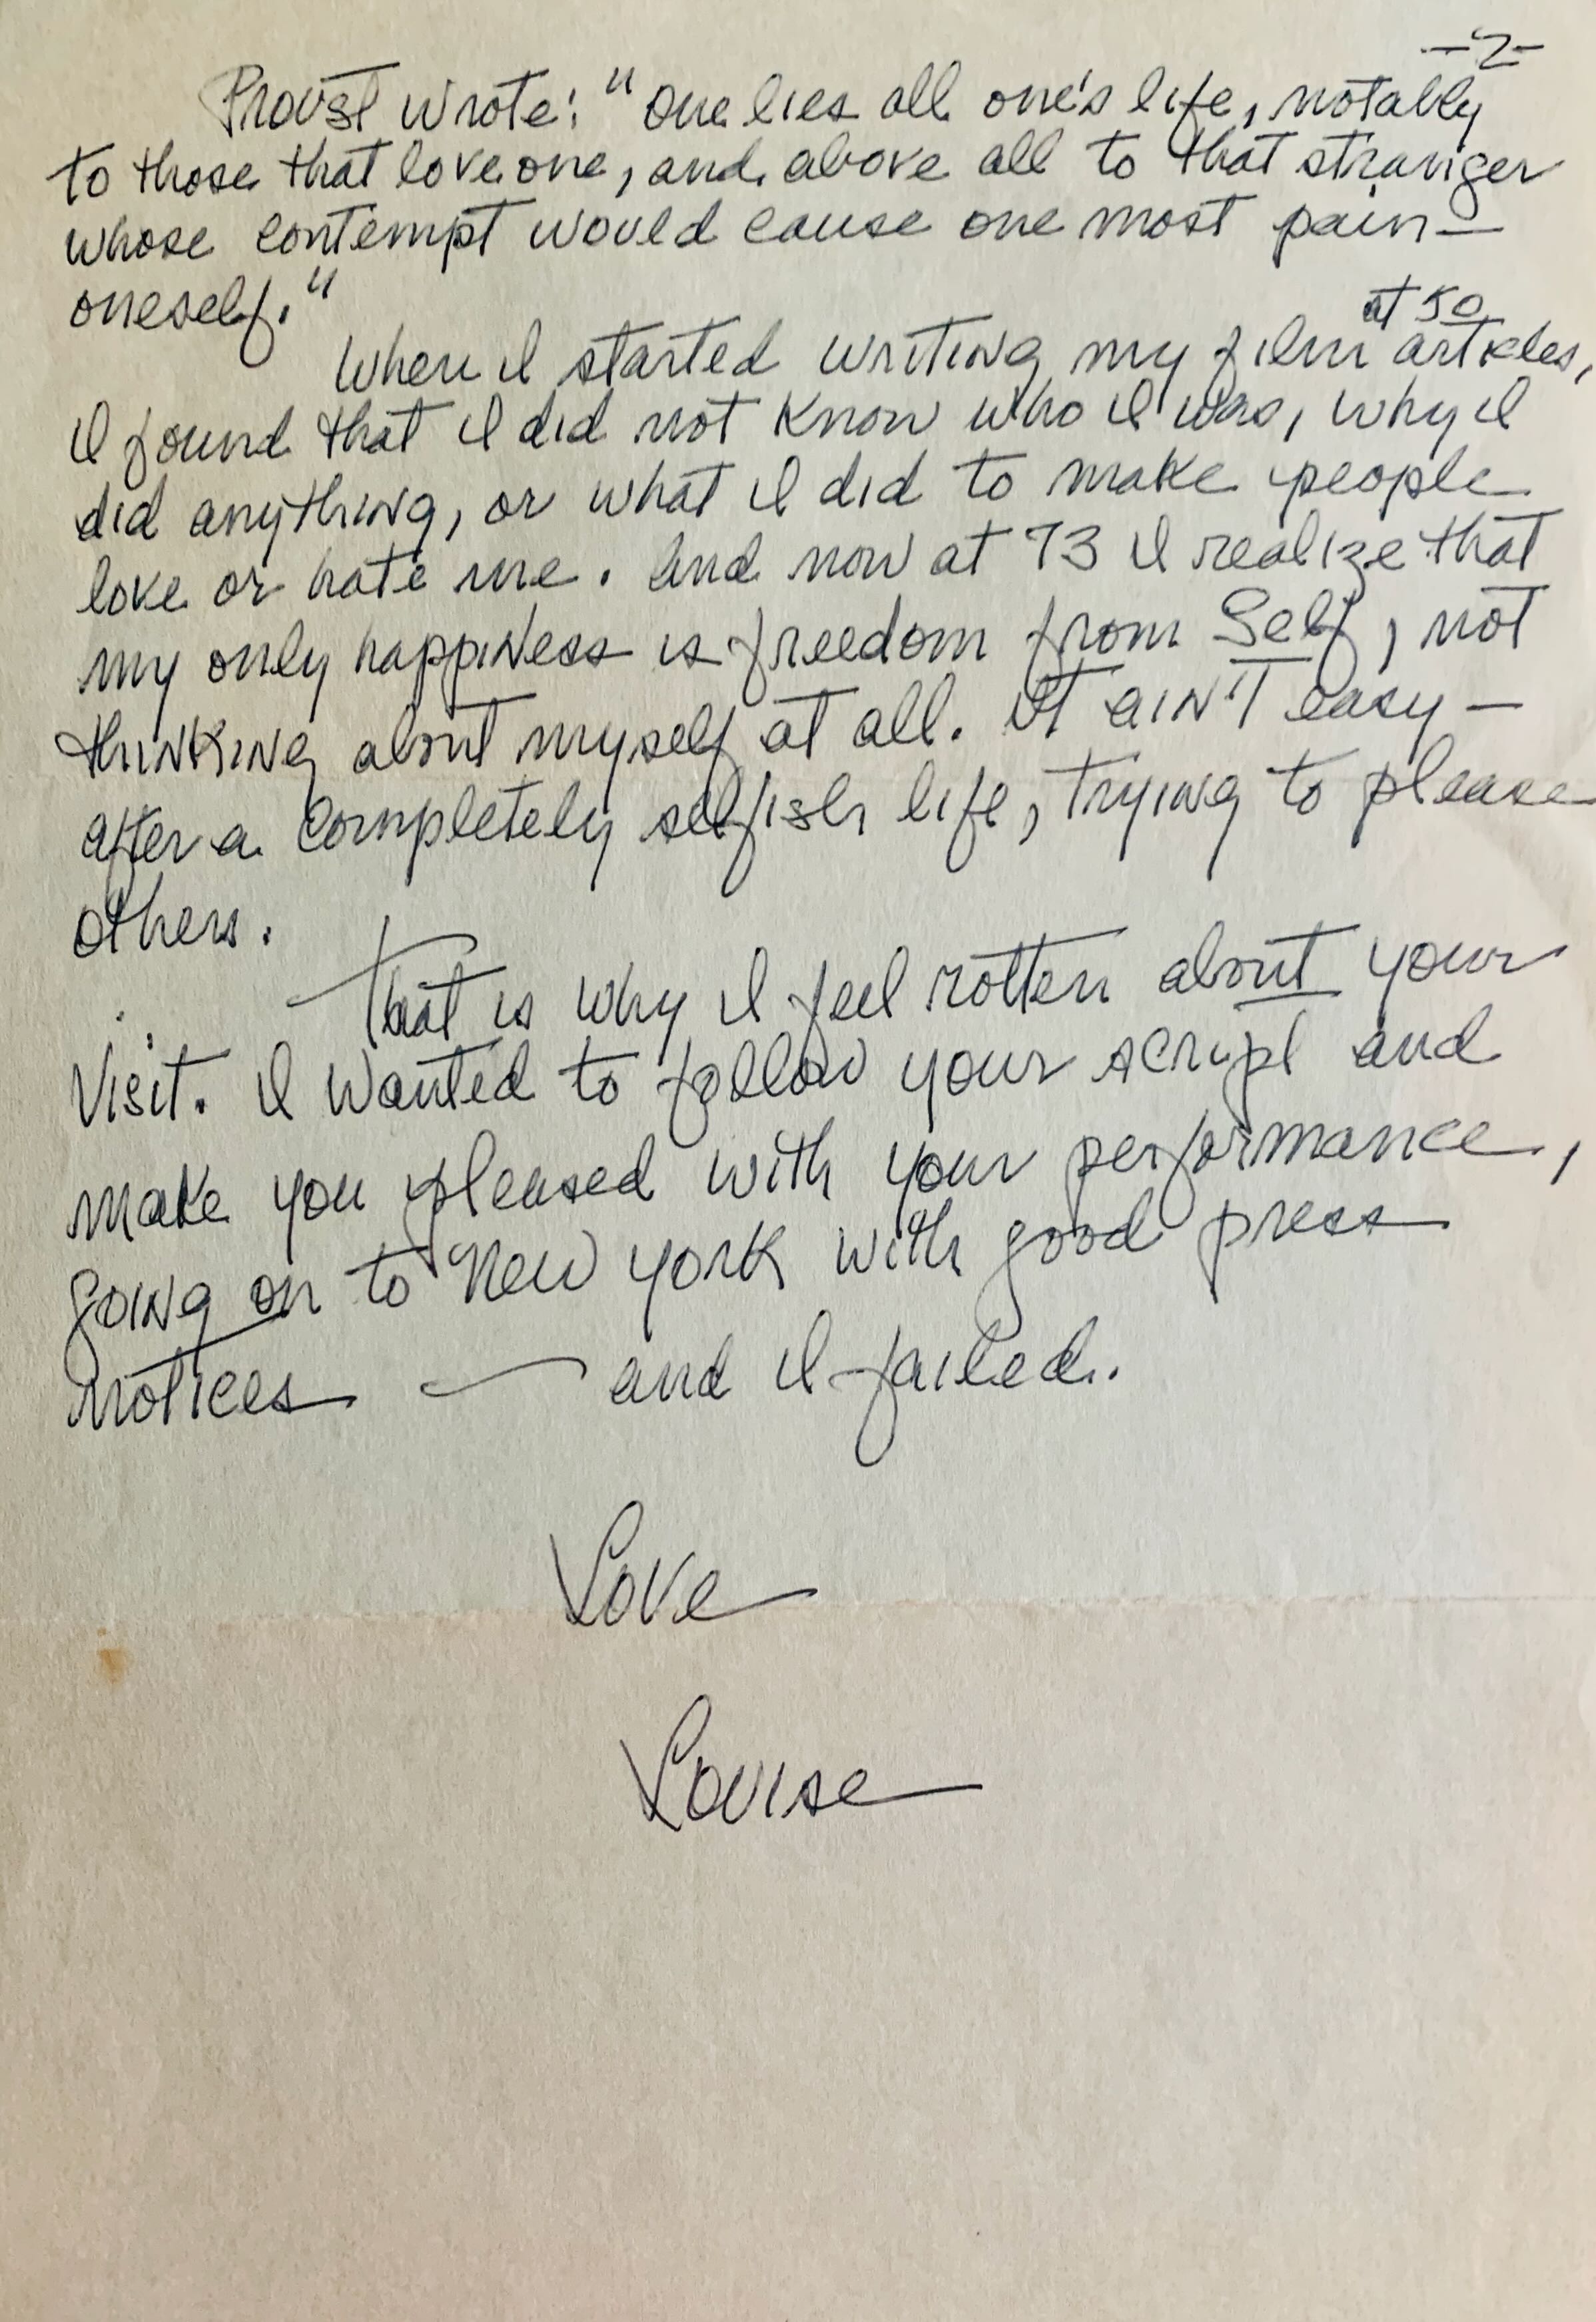 -2-
Proust wrote: "One lies all one's life, notably
to those that love one, and above all to that stranger
whose contempt would cause one most pain —
oneself."
at 50
When I started writing my film articles,
I found that I did not know who I was, why I
did anything, or what I did to make people
love or hate me. And now at 73 I realize that
my only happiness is freedom from Self, not
thinking about myself at all. It ain't easy —
after a completely selfish life, trying to please
others.
That is why I feel rotten about your
visit. I wanted to follow your script and
make you pleased with your performance,
going on to New York with good press
notices — and I failed.
Love
Louise